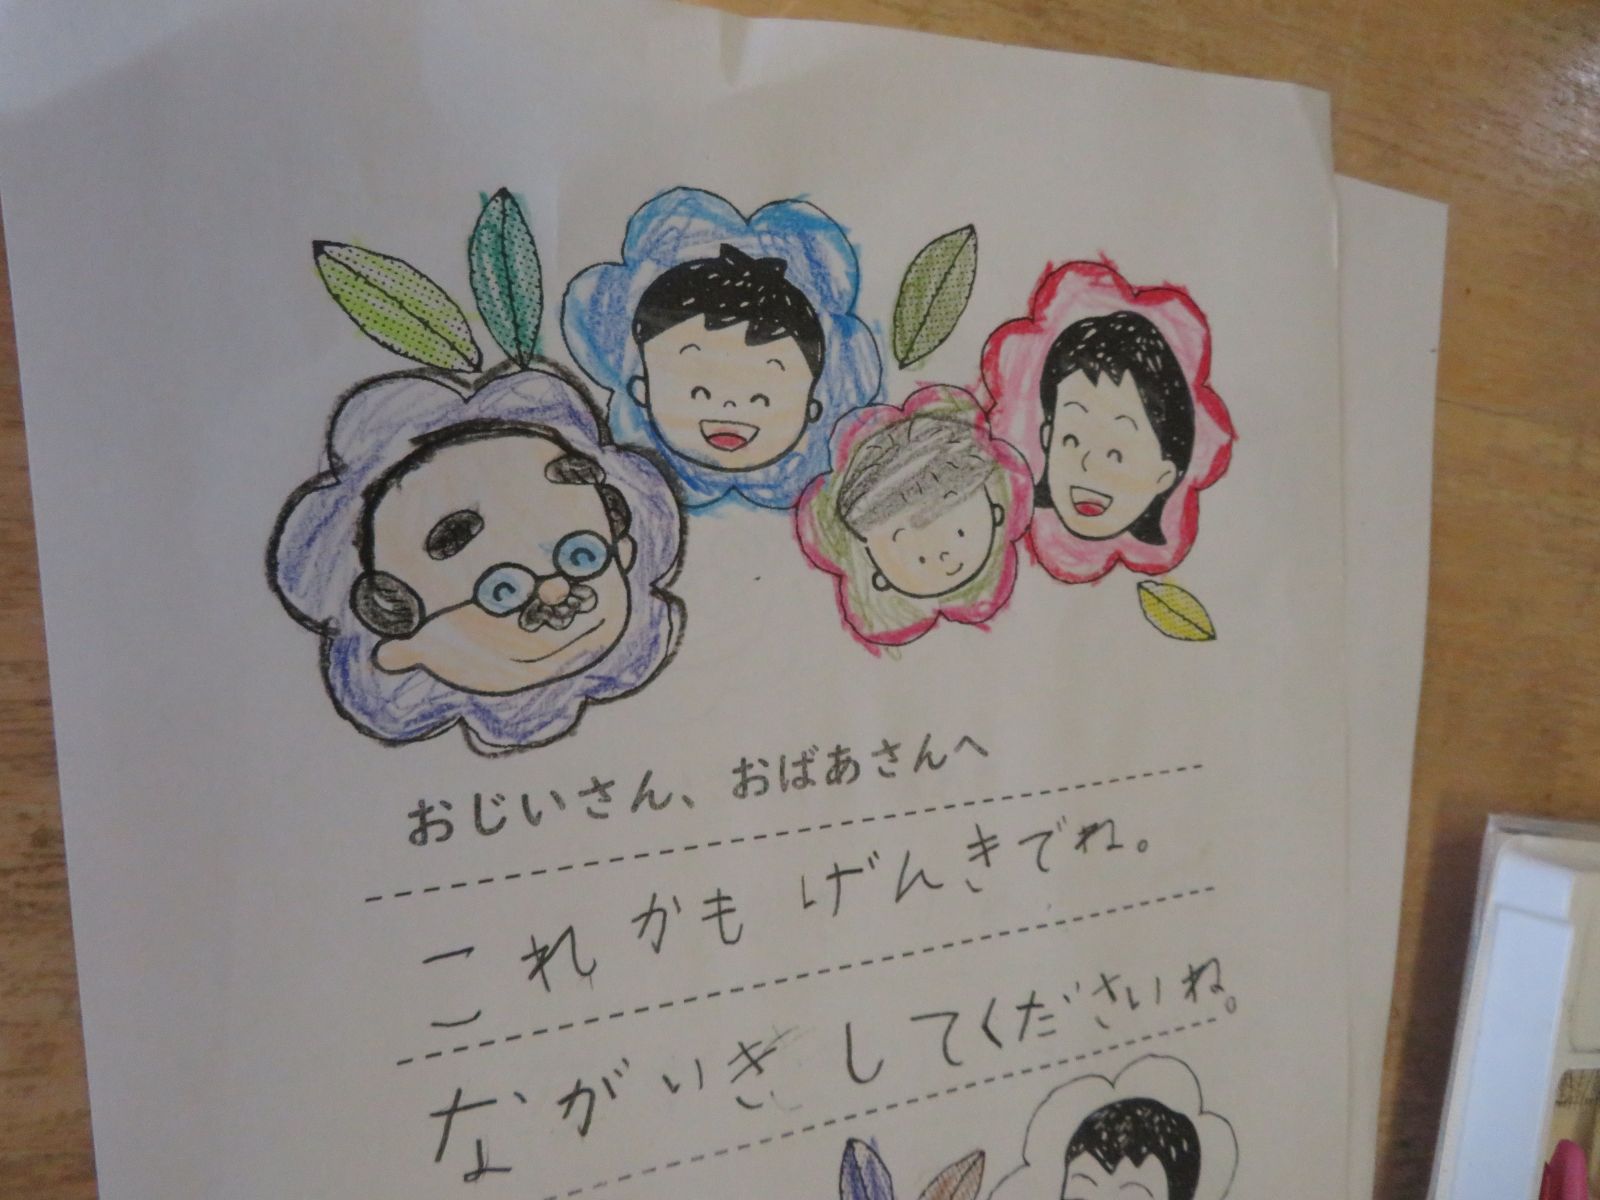 おじいさん、おばあさんへ
これかも げんきでね。
ながいきしてくださいね。